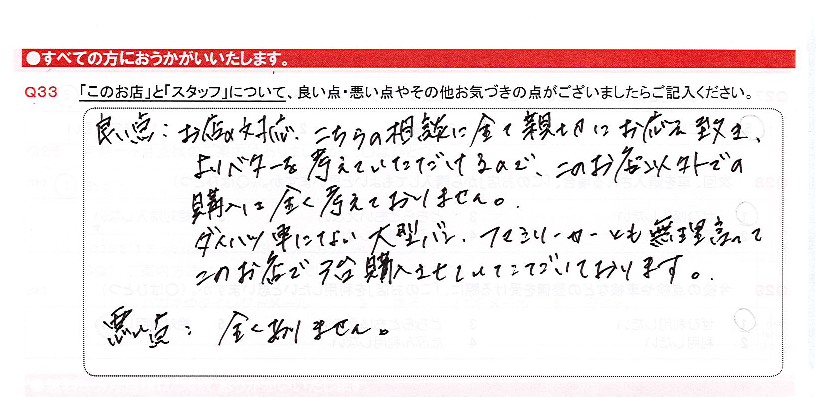 ●すべての方におうかがいいたします。
Q33 「このお店」と「スタッフ」について、良い点・悪い点やその他お気づきの点がございましたらご記入ください。
良い点：お店の対応、こちらの相談に全て親切にお応え致き、
よりベターを考えていただけるので、このお店以外での
購入は全く考えておりません。
ダイハツ車にない大型バン、ファミリーカーとも無理言って
このお店で購入させていただいております。
悪い点：全くありません。